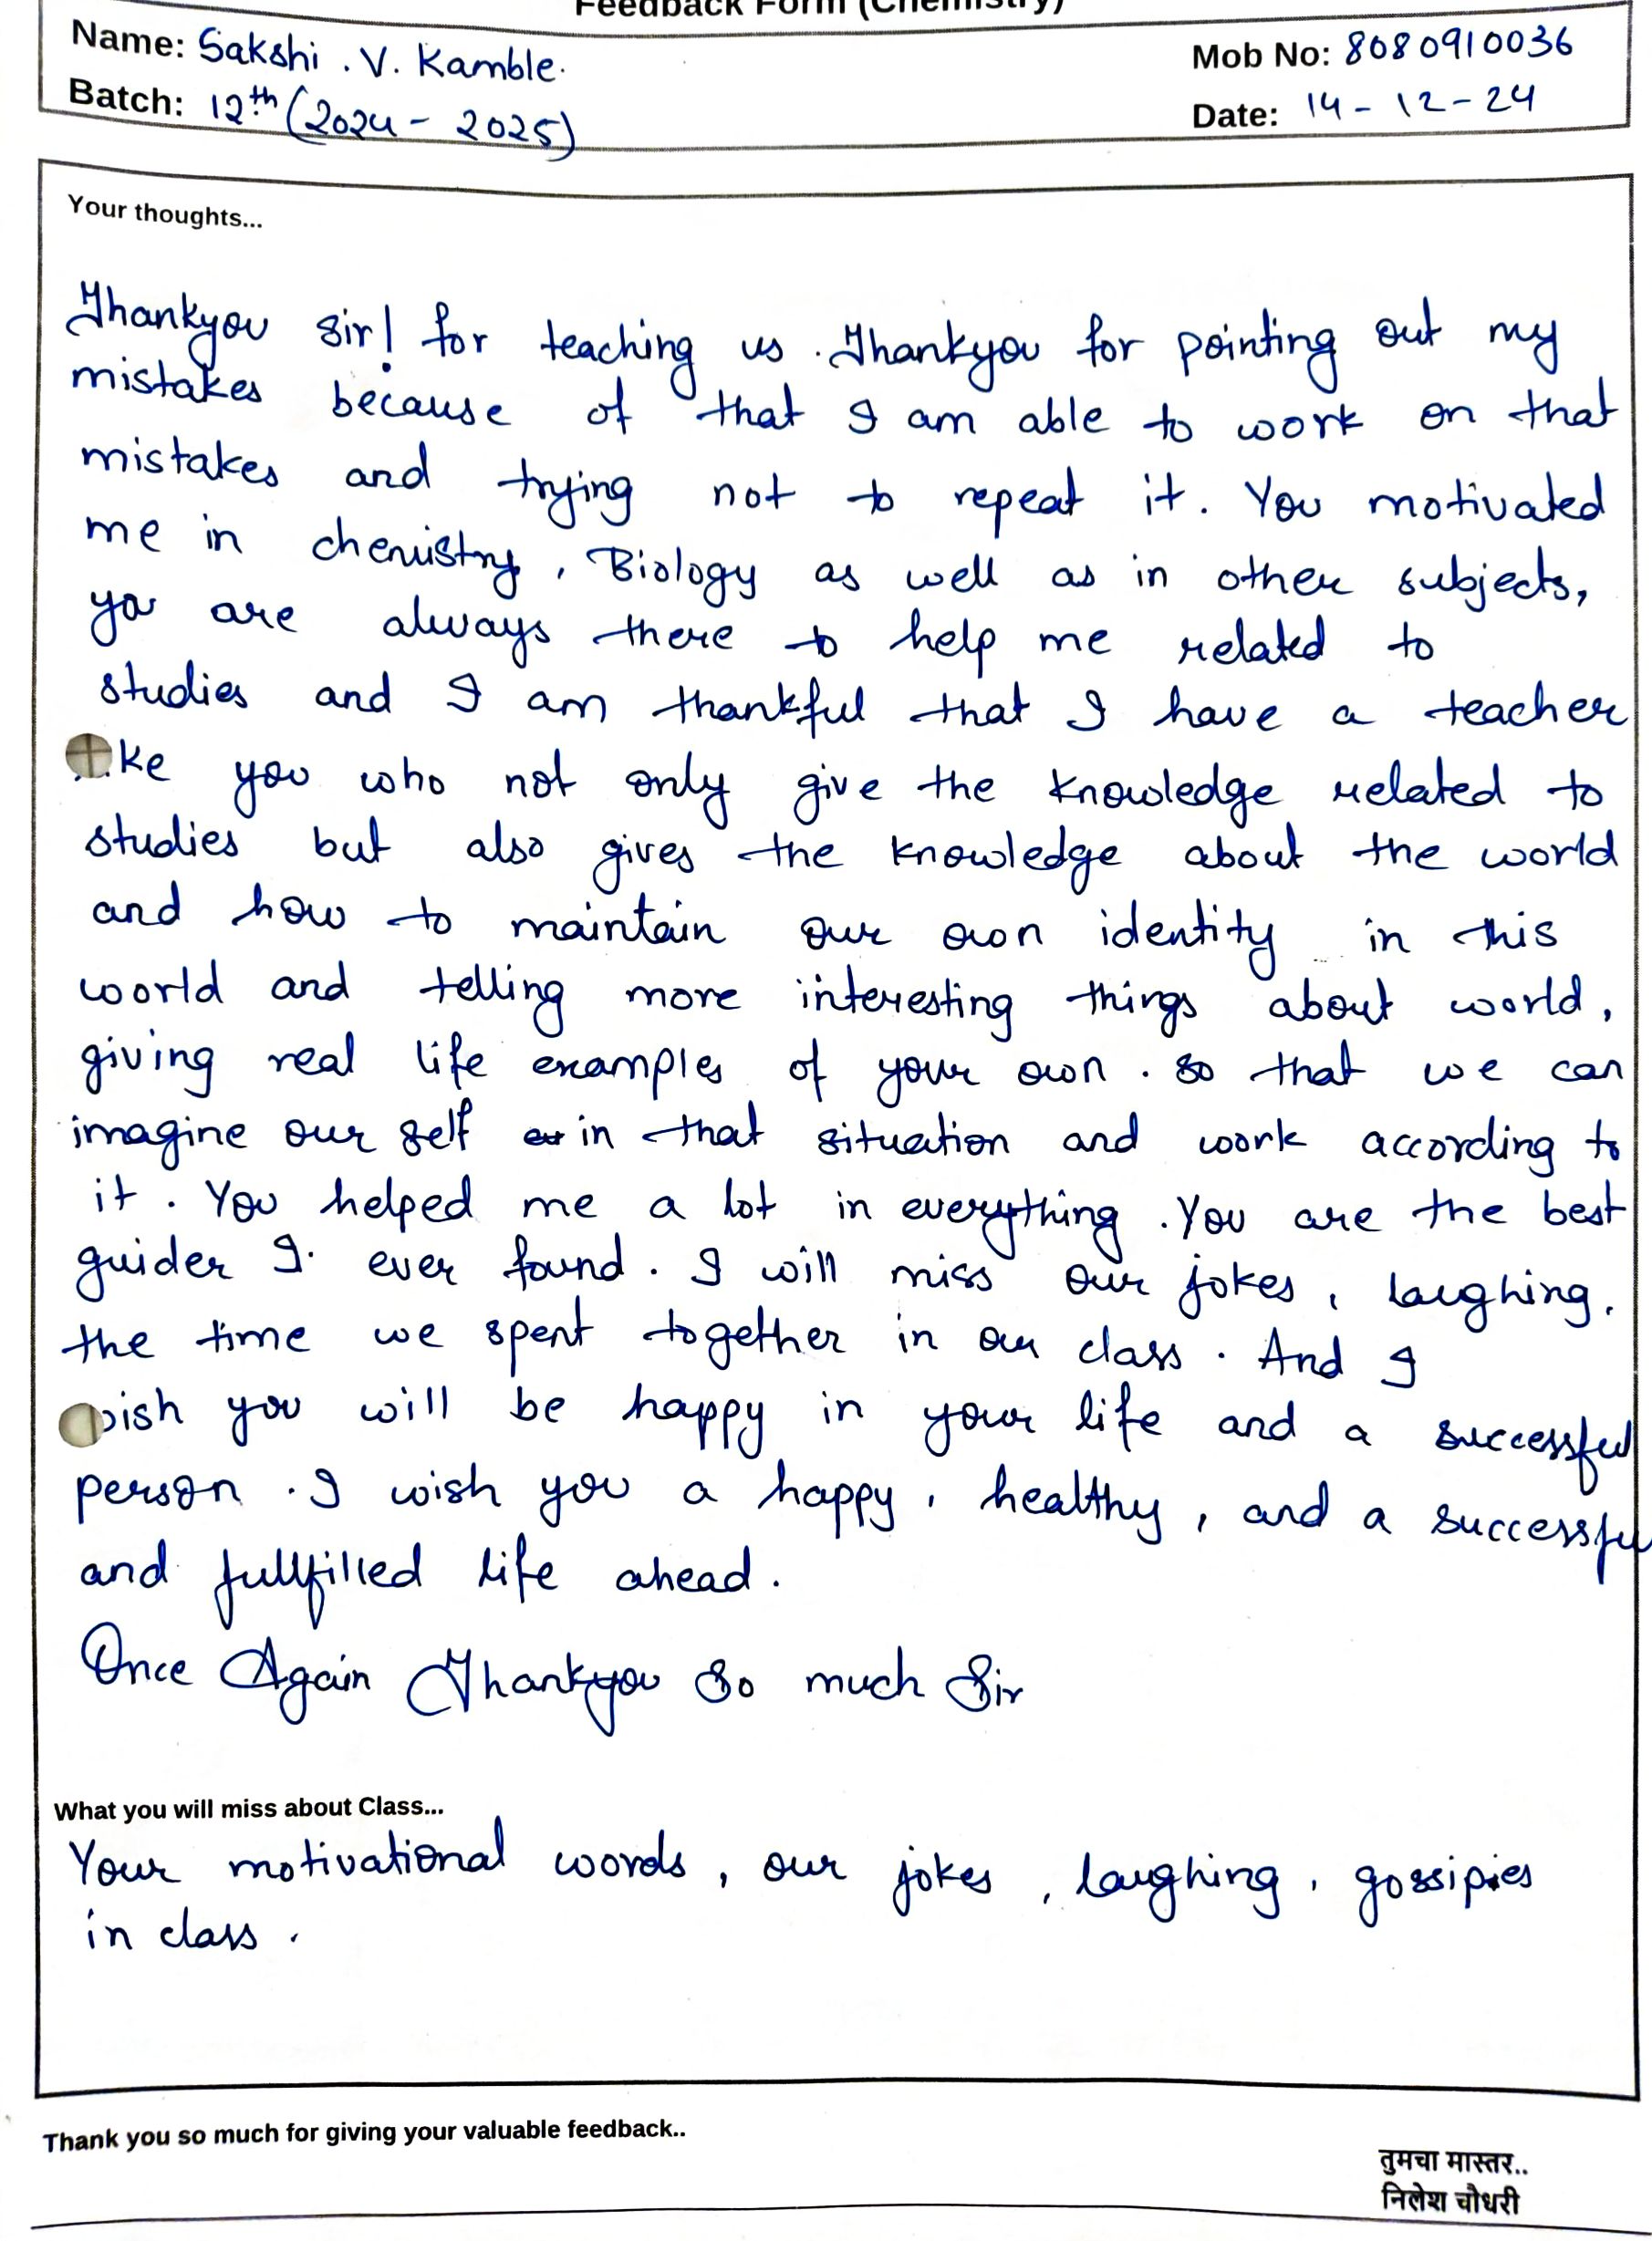 Feedback Form (Chemistry)
Name: Sakshi . V. Kamble.
Mob No: 8080910036
Batch: 12th (2024 - 2025)
Date: 14 - 12 - 24
Your thoughts...
Thankyou Sir! for teaching us . Thankyou for pointing out my
mistakes because of that I am able to work on that
mistakes and trying not to repeat it. You motivated
me in chemistry, Biology as well as in other subjects,
you are always there to help me related to
studies and I am thankful that I have a teacher
ke you who not only give the knowledge related to
studies but also gives the knowledge about the world
and how to maintain our own identity in this
world and telling more interesting things about world,
giving real life examples of your own . so that we can
imagine our self in that situation and work according to
it . You helped me a lot in everything . You are the best
guider I. ever found . I will miss our jokes, laughing,
the time we spent together in our class . And I
wish you will be happy in your life and a successful
person . I wish you a happy, healthy, and a successfu
and fullfilled life ahead.
Once Again Thankyou So much Sir
What you will miss about Class...
Your motivational words, our jokes, laughing, gossipies
in class.
Thank you so much for giving your valuable feedback..
तुमचा मास्तर..
निलेश चौधरी